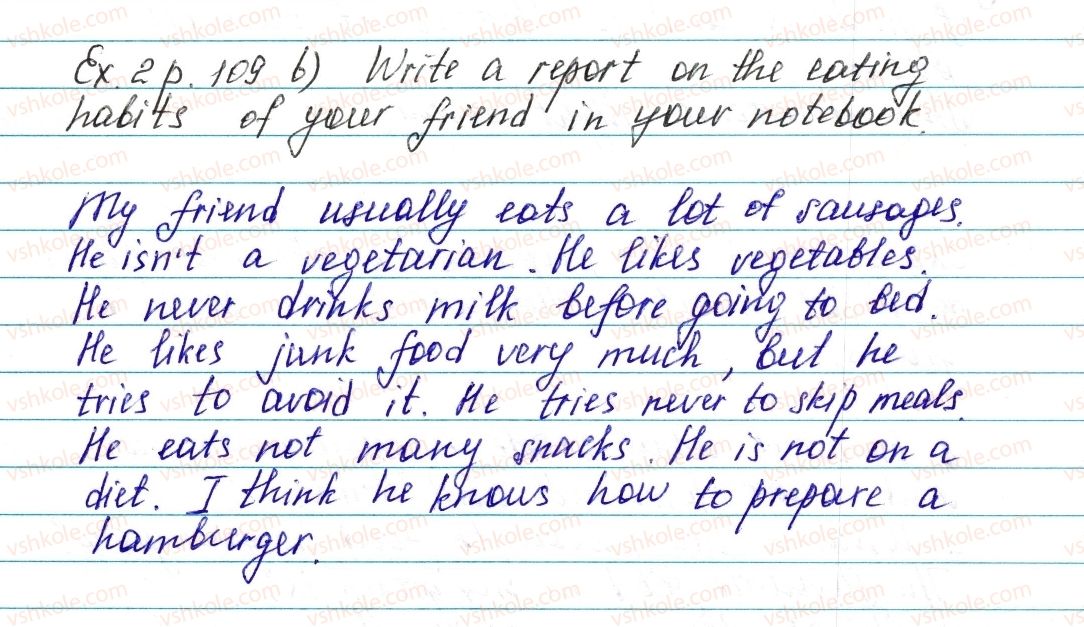 Ex. 2 p. 109 b) Write a report on the eating
habits of your friend in your notebook.
My friend usually eats a lot of sausages.
He isn't a vegetarian. He likes vegetables.
He never drinks milk before going to bed.
He likes junk food very much, but he
tries to avoid it. He tries never to skip meals.
He eats not many snacks. He is not on a
diet. I think he knows how to prepare a
hamburger.